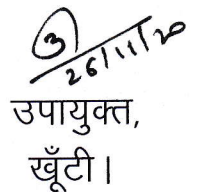 26/11/20
उपायुक्त,
खूँटी।